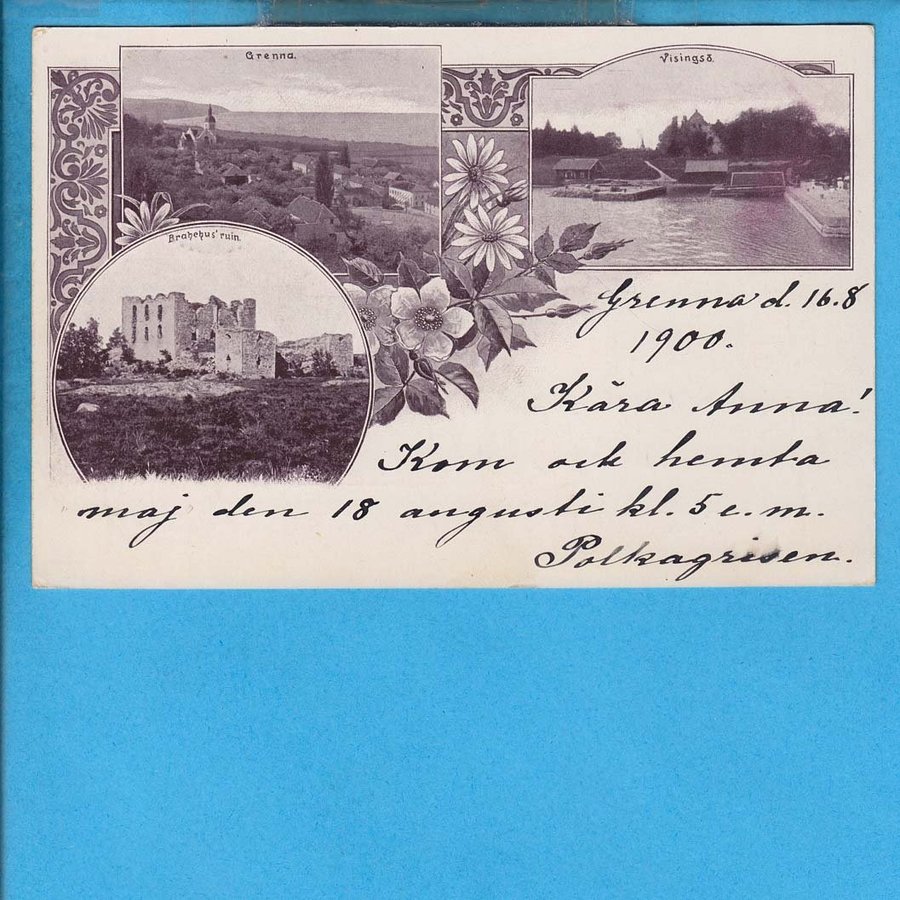 Grenna.
Visingsö.
Brahehus' ruin.
Grenna d. 16.8
1900.
Kära Anna!
Kom och hemta
maj den 18 augusti kl. 5 e.m.
Polkagrisen.